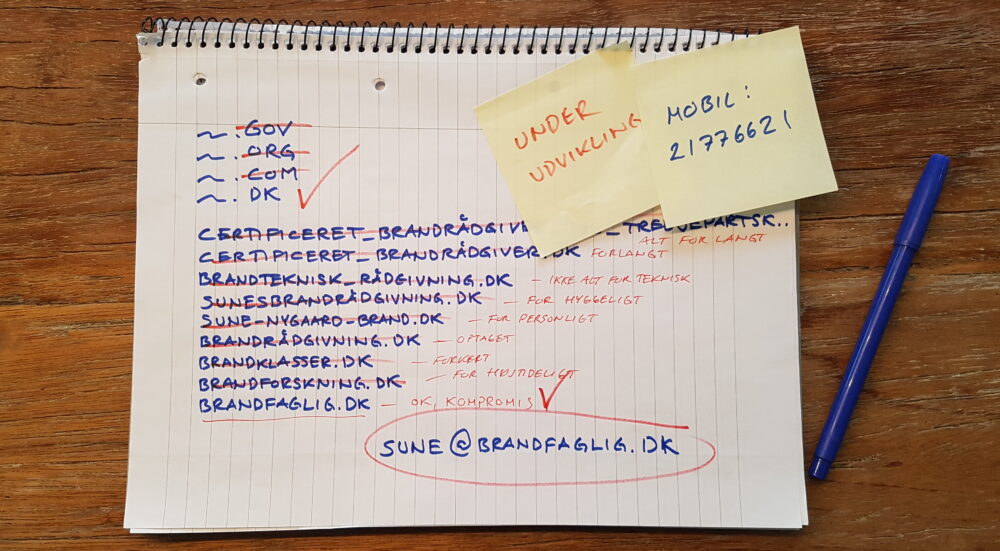 ~.GOV
~.ORG
~.COM
~.DK
UNDER
UDVIKLING
MOBIL:
21776621
CERTIFICERET_BRANDRÅDGIVE _TREDJEPARTSK..
ALT FOR LANGT
CERTIFICERET_BRANDRÅDGIVER.DK FOR LANGT
BRANDTEKNISK_RÅDGIVNING.DK – IKKE ALT FOR TEKNISK
SUNESBRANDRÅDGIVNING.DK – FOR HYGGELIGT
SUNE-NYGAARD-BRAND.DK – FOR PERSONLIGT
BRANDRÅDGIVNING.DK – OPTAGET
BRANDKLASSER.DK – FORKERT
BRANDFORSKNING.DK – FOR HØJTIDELIGT
BRANDFAGLIG.DK – OK, KOMPROMIS
SUNE@BRANDFAGLIG.DK